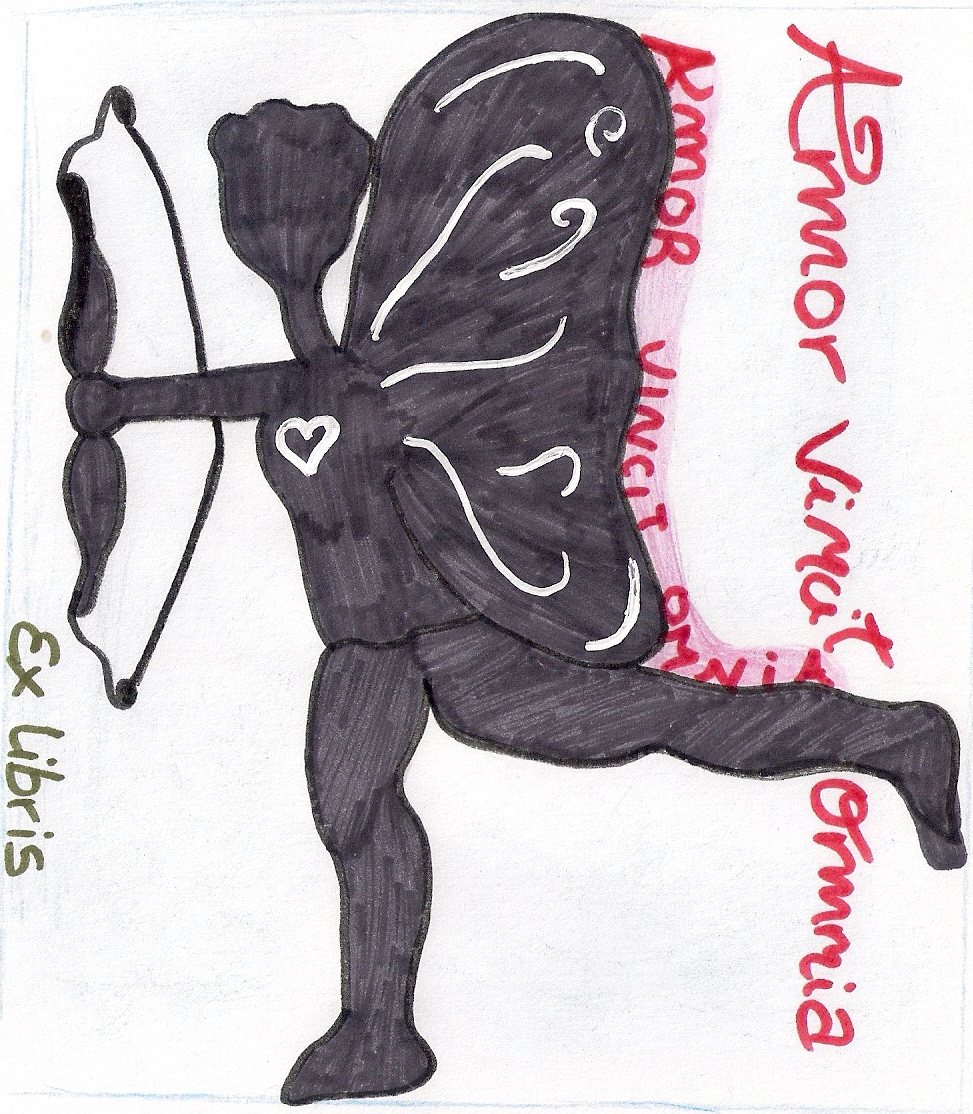 Amor Vincit Omnia
AMOR VINCIT OMNIA
Ex libris